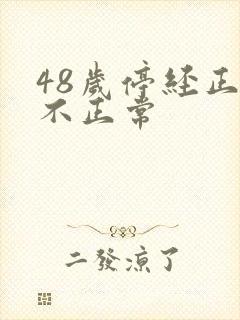 48歲停經正
不正常
二發涼了